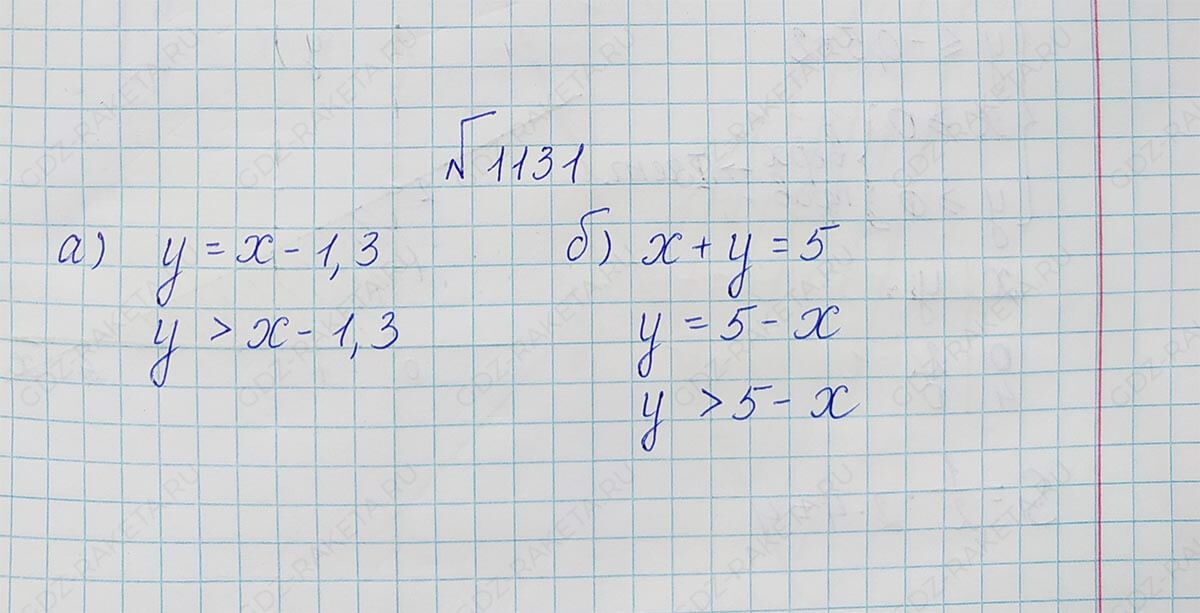 №1131
а) y = x - 1,3
y > x - 1,3
б) x + y = 5
y = 5 - x
y > 5 - x
GDZ-RAKETA.RU